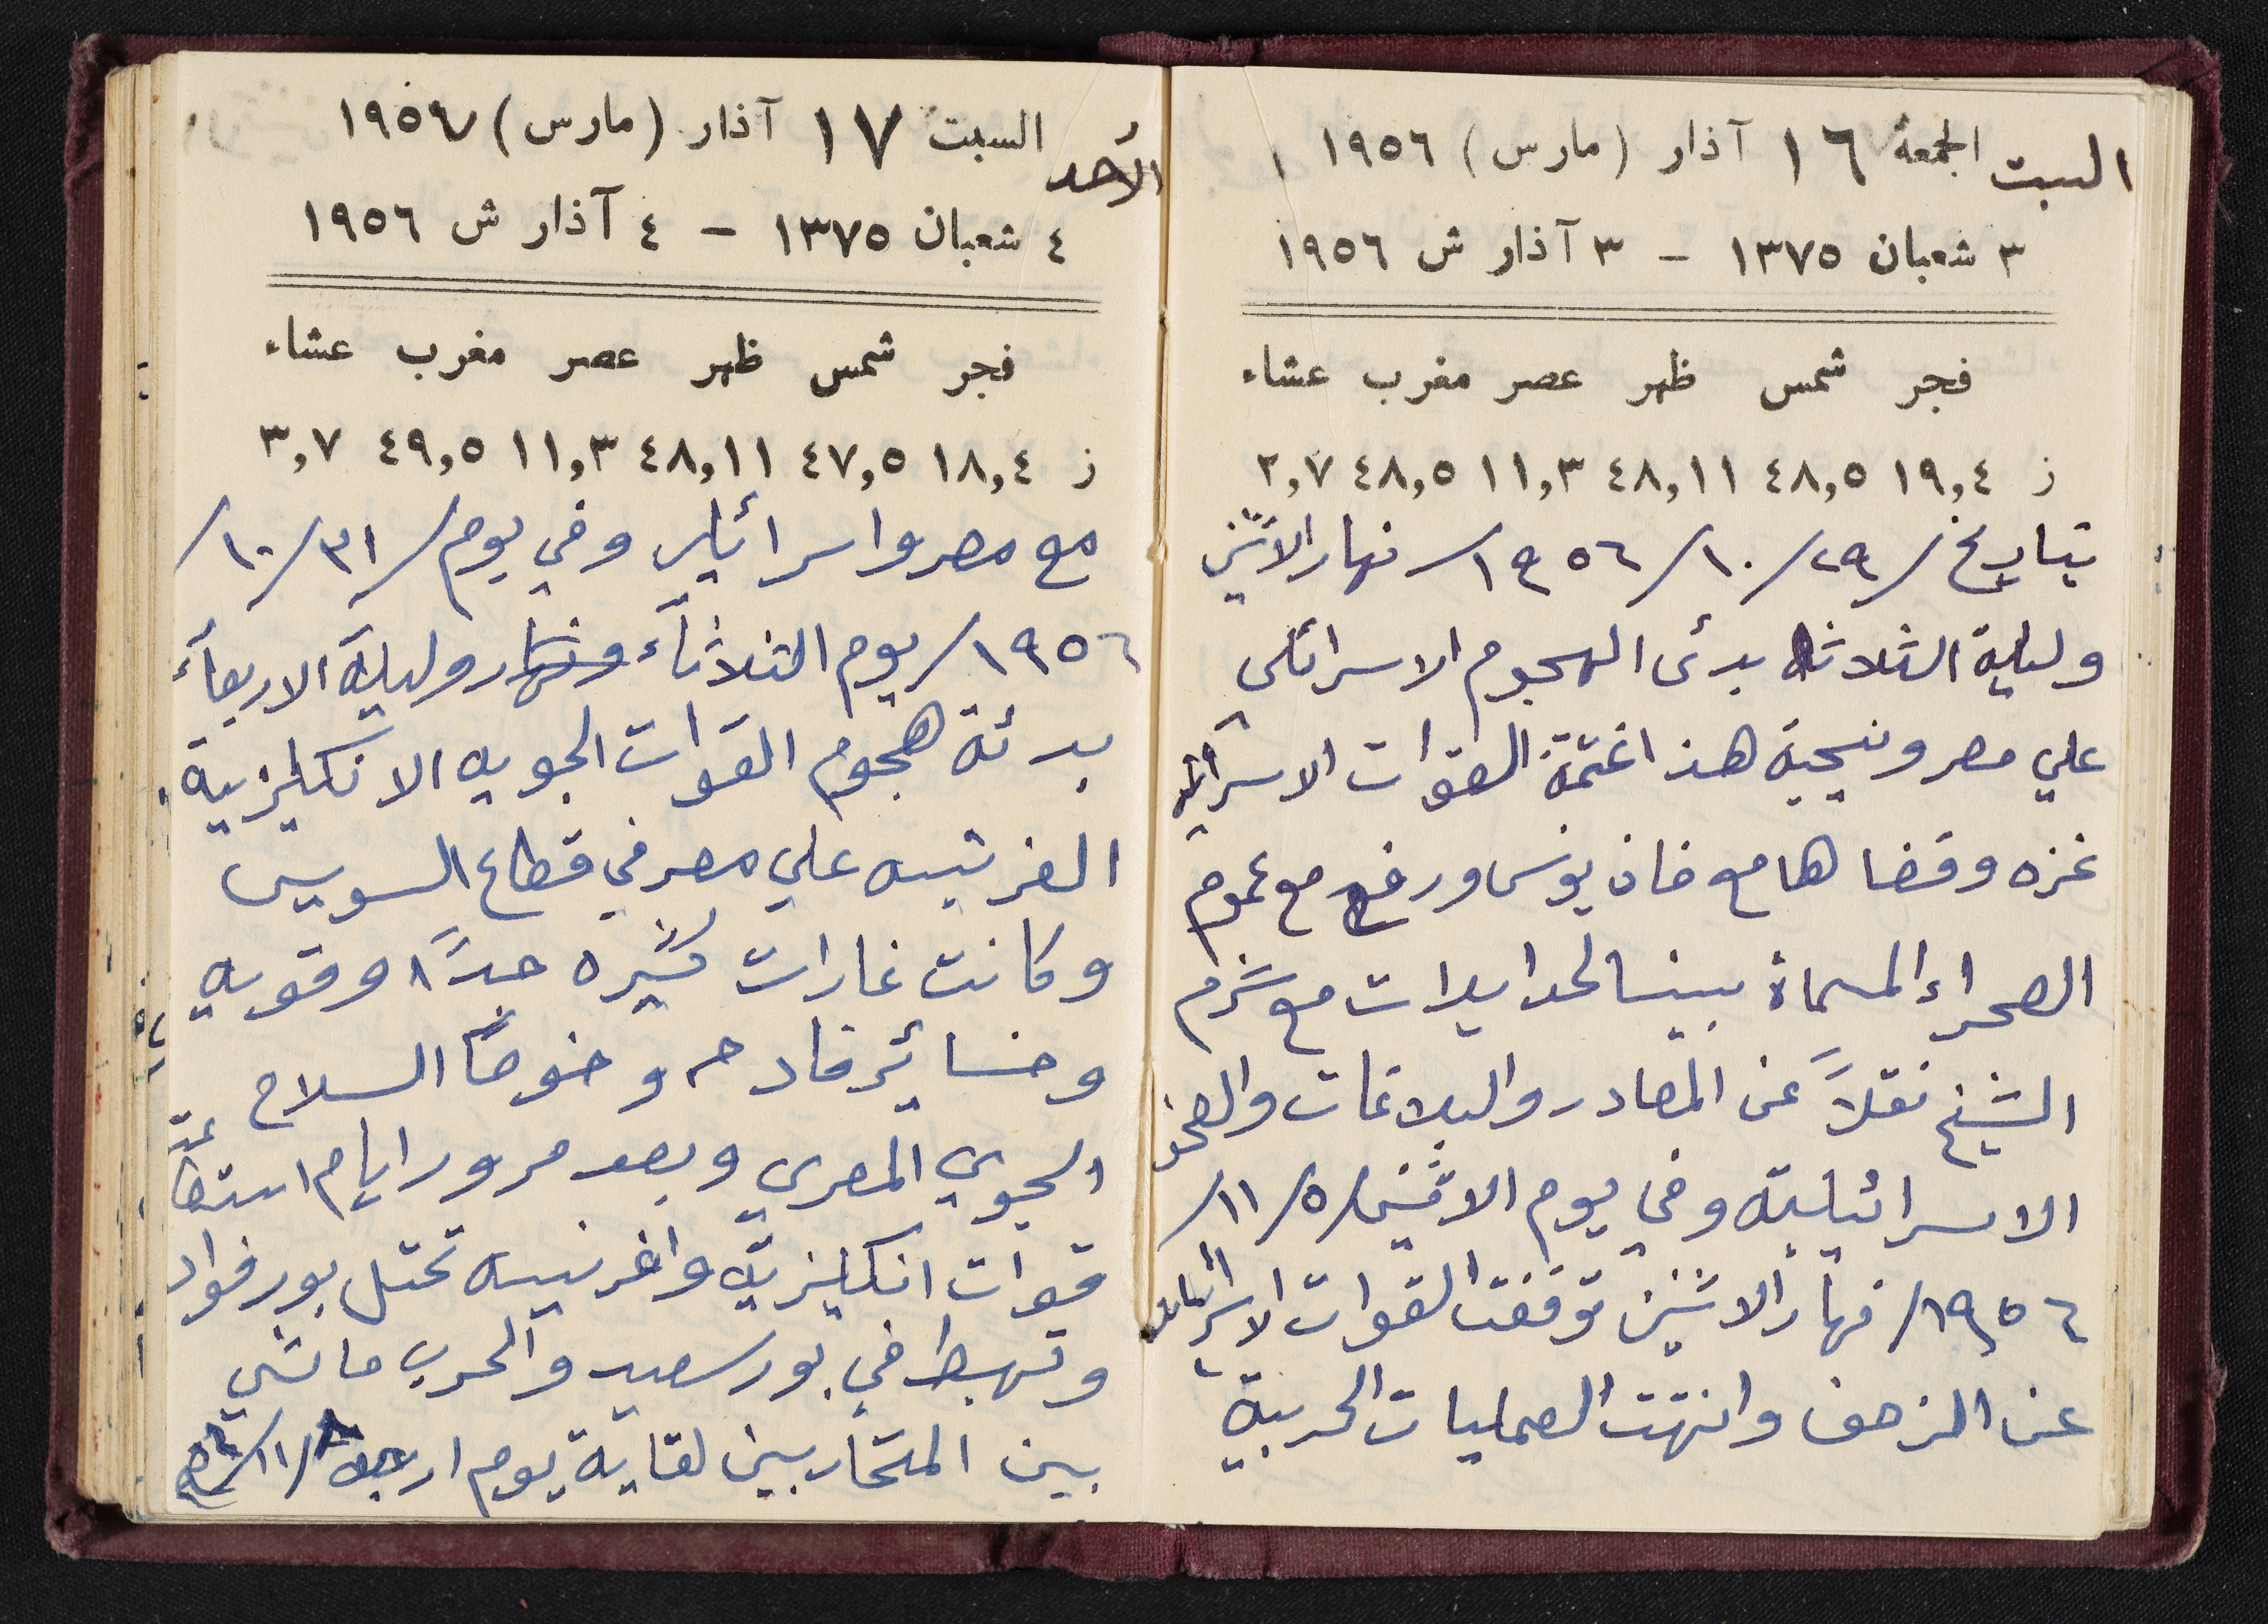 السبت الجمعة ١٦ آذار (مارس) ١٩٥٦
٣ شعبان ١٣٧٥ - ٣ آذار ش ١٩٥٦
فجر شمس ظهر عصر مغرب عشاء
ز ١٩,٤ ٤٨,٥ ٤٨,١١ ١١,٣ ٤٨,٥ ٢,٧
بتاريخ /٢٩/١٠/١٩٥٦/ نهار الاثنين
وليلة الثلاثا بدئ الهجوم الاسرائلي
علي مصر ونيجية هذ اغتمة القوات الاسرائلية
غزه وقضاها مع خان يونس ورفح مع عموم
الصحراء المسماة بينسالحدايدات مع شرم
الشيخ نقلاً عن المصادر والبلاغات والصحف
الاسرائيليه وفي يوم الاثنين/٥/١١/
١٩٥٦/ نهار الاثنين توقفت القوات الاسرائيليه
عن الزحف وانتهت العمليات الحربية
الأحد السبت ١٧ آذار (مارس) ١٩٥٦
٤ شعبان ١٣٧٥ - ٤ آذار ش ١٩٥٦
فجر شمس ظهر عصر مغرب عشاء
ز ١٨,٤ ٤٧,٥ ٤٨,١١ ١١,٣ ٤٩,٥ ٣,٧
مع مصر واسرائيل وفي يوم/٣١/١٠/
١٩٥٦/ يوم الثلاثآء ونهار وليلة الاربعآء
بدئة هجوم القوات الجويه الانكليزية
الفرنسيه علي مصر في قطاع السويس
وكانت غارات كثيره جداً وقويه
وخسائر فادحه وخوصاً السلاح
الجوي المصري وبعد مرور ايام استطاعة
قوات انكليزية وافرنسيه تحتل بور فواد
وتهبط في بور سعيد والحرب ماشي
بين المتحاربين لغاية يوم اربعه ٨/١١/٥٦